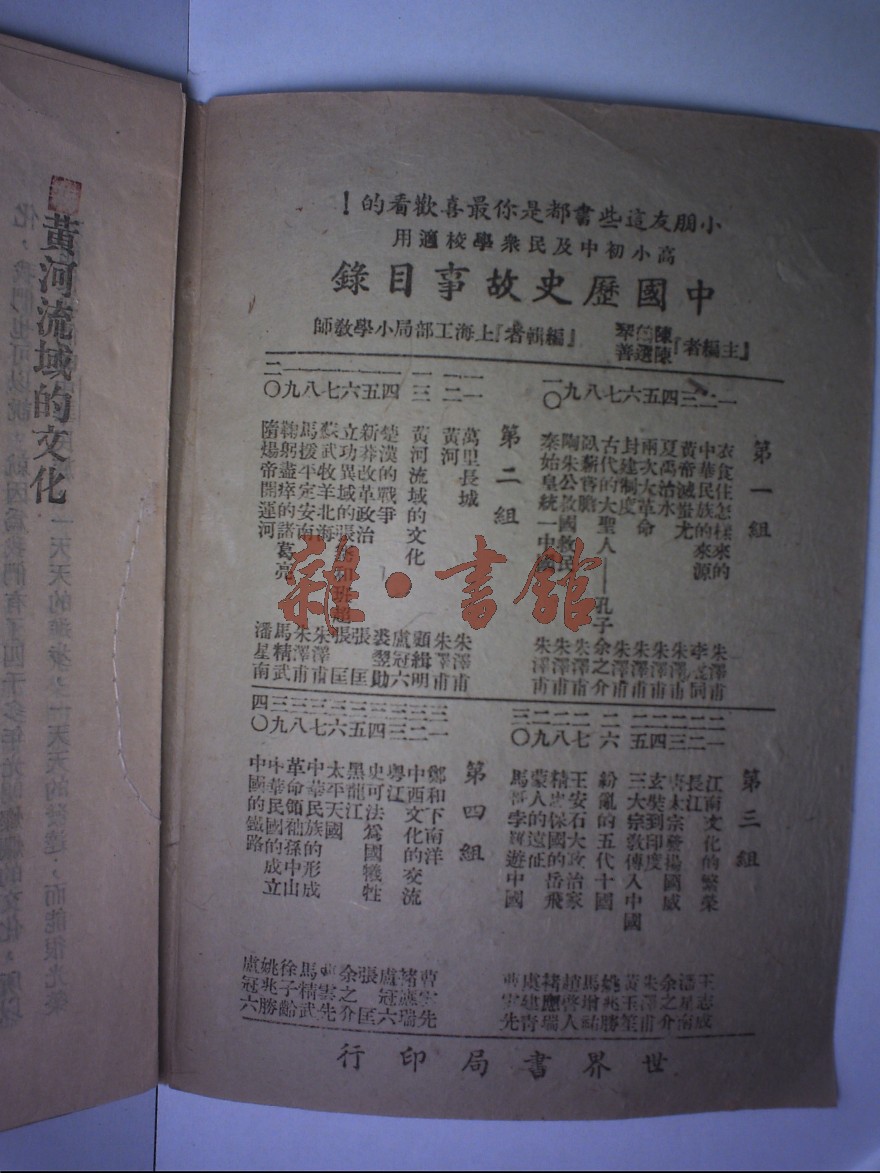 小朋友這些書都是你最喜歡看的！
高小初中及民衆學校適用
中國歷史故事目錄
『主編者』陳鶴琴 陳選善
『編輯者』上海工部局小學教師
第一組
一 衣食住怎樣來的 朱澤甫
二 中華民族的來源
三 黃帝滅蚩尤 朱澤甫
四 夏禹治水 朱澤甫
五 兩次大革命 朱澤甫
六 封建制度 朱澤甫
七 古代的大聖人——孔子 余之介
八 臥薪嘗膽 朱澤甫
九 陶朱公救國救民 朱澤甫
一〇 秦始皇統一中國 朱澤甫
第二組
一一 萬里長城 朱澤甫
一二 黃河 朱澤甫
一三 黃河流域的文化 顧緝明
一四 楚漢的戰爭 盧冠六
一五 新莽改革政治 裘翌勛
一六 立功異域的張騫和班超 張匡
一七 蘇武牧羊北海 張匡
一八 馬援平定安南 朱澤甫
一九 鞠躬盡瘁的諸葛亮 馬精武
二〇 隋煬帝開運河 潘星南
第三組
二一 江南文化的繁榮 王志成
二二 長江 潘星南
二三 唐太宗發揚國威 余之介
二四 玄奘到印度 朱澤甫
二五 三大宗教傳入中國 黃玉笙
二六 紛亂的五代十國 姚兆勝
二七 王安石大政治家 馬增祜
二八 精忠保國的岳飛 趙啓人
二九 蒙人的遠征 褚應瑞
三〇 馬哥孛羅遊中國 曹雲先
第四組
三一 鄭和下南洋 曹雲先
三二 中西文化的交流 褚應瑞
三三 粵江 盧冠六
三四 史可法爲國犧牲 張匡
三五 黑龍江 余之介
三六 太平天國 曹雲先
三七 中華民族的形成 馬精武
三八 革命領袖孫中山 徐子齡
三九 中華民國的成立 姚兆勝
四〇 中國的鐵路 盧冠六
世界書局印行
黃河流域的文化
雜·書館